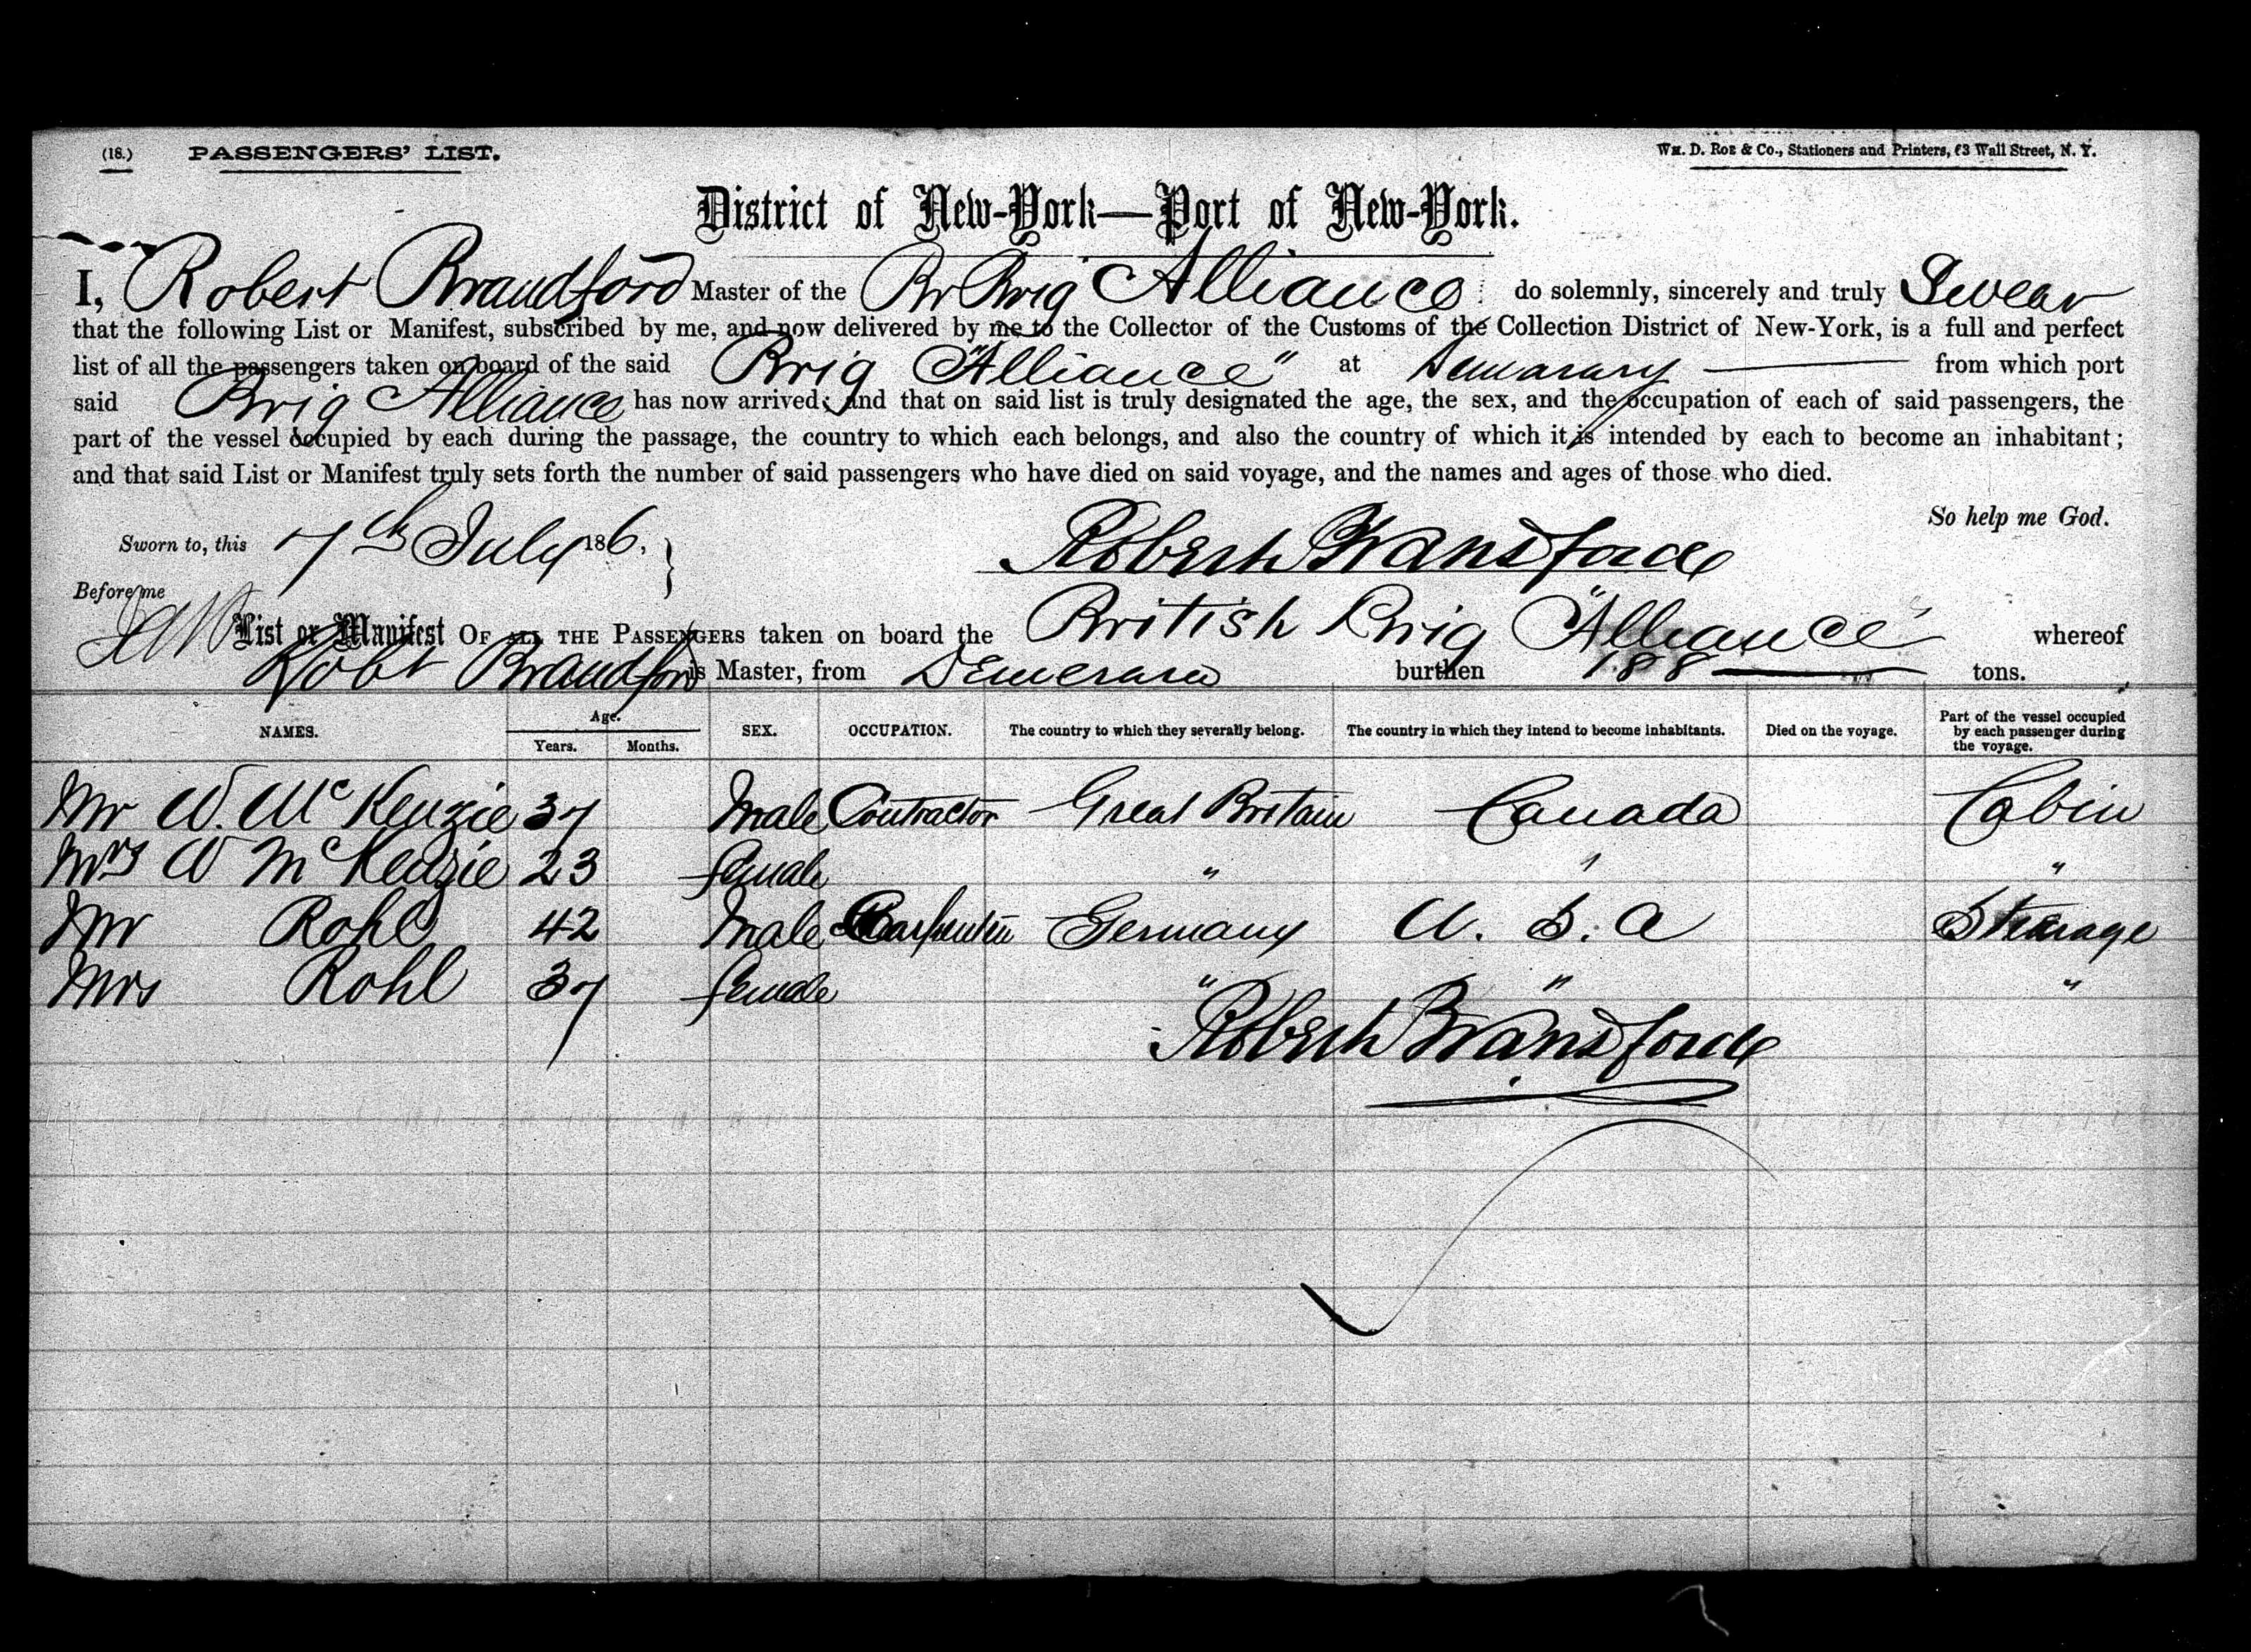 (18.) PASSENGERS' LIST. Wm. D. Roe & Co., Stationers and Printers, 63 Wall Street, N. Y.
District of New-York—Port of New-York.
I, Robert Brandford Master of the Br Brig Alliance do solemnly, sincerely and truly Swear
that the following List or Manifest, subscribed by me, and now delivered by me to the Collector of the Customs of the Collection District of New-York, is a full and perfect
list of all the passengers taken on board of the said Brig "Alliance" at Demarary from which port
said Brig Alliance has now arrived; and that on said list is truly designated the age, the sex, and the occupation of each of said passengers, the
part of the vessel occupied by each during the passage, the country to which each belongs, and also the country of which it is intended by each to become an inhabitant;
and that said List or Manifest truly sets forth the number of said passengers who have died on said voyage, and the names and ages of those who died.
So help me God.
Sworn to, this 7th July 186, Robert Brandford
Before me
List or Manifest OF ALL THE PASSENGERS taken on board the British Brig "Alliance" whereof
Robt Brandford is Master, from Demerara burthen 188 tons.
NAMES. Age. Years. Months. SEX. OCCUPATION. The country to which they severally belong. The country in which they intend to become inhabitants. Died on the voyage. Part of the vessel occupied by each passenger during the voyage.
Mr W. McKenzie 37 Male Contractor Great Britain Canada Cabin
Mrs W McKenzie 23 female " " "
Mr Rohl 42 Male Carpenter Germany U. S. A Steerage
Mrs Rohl 37 female " " "
Robert Brandford